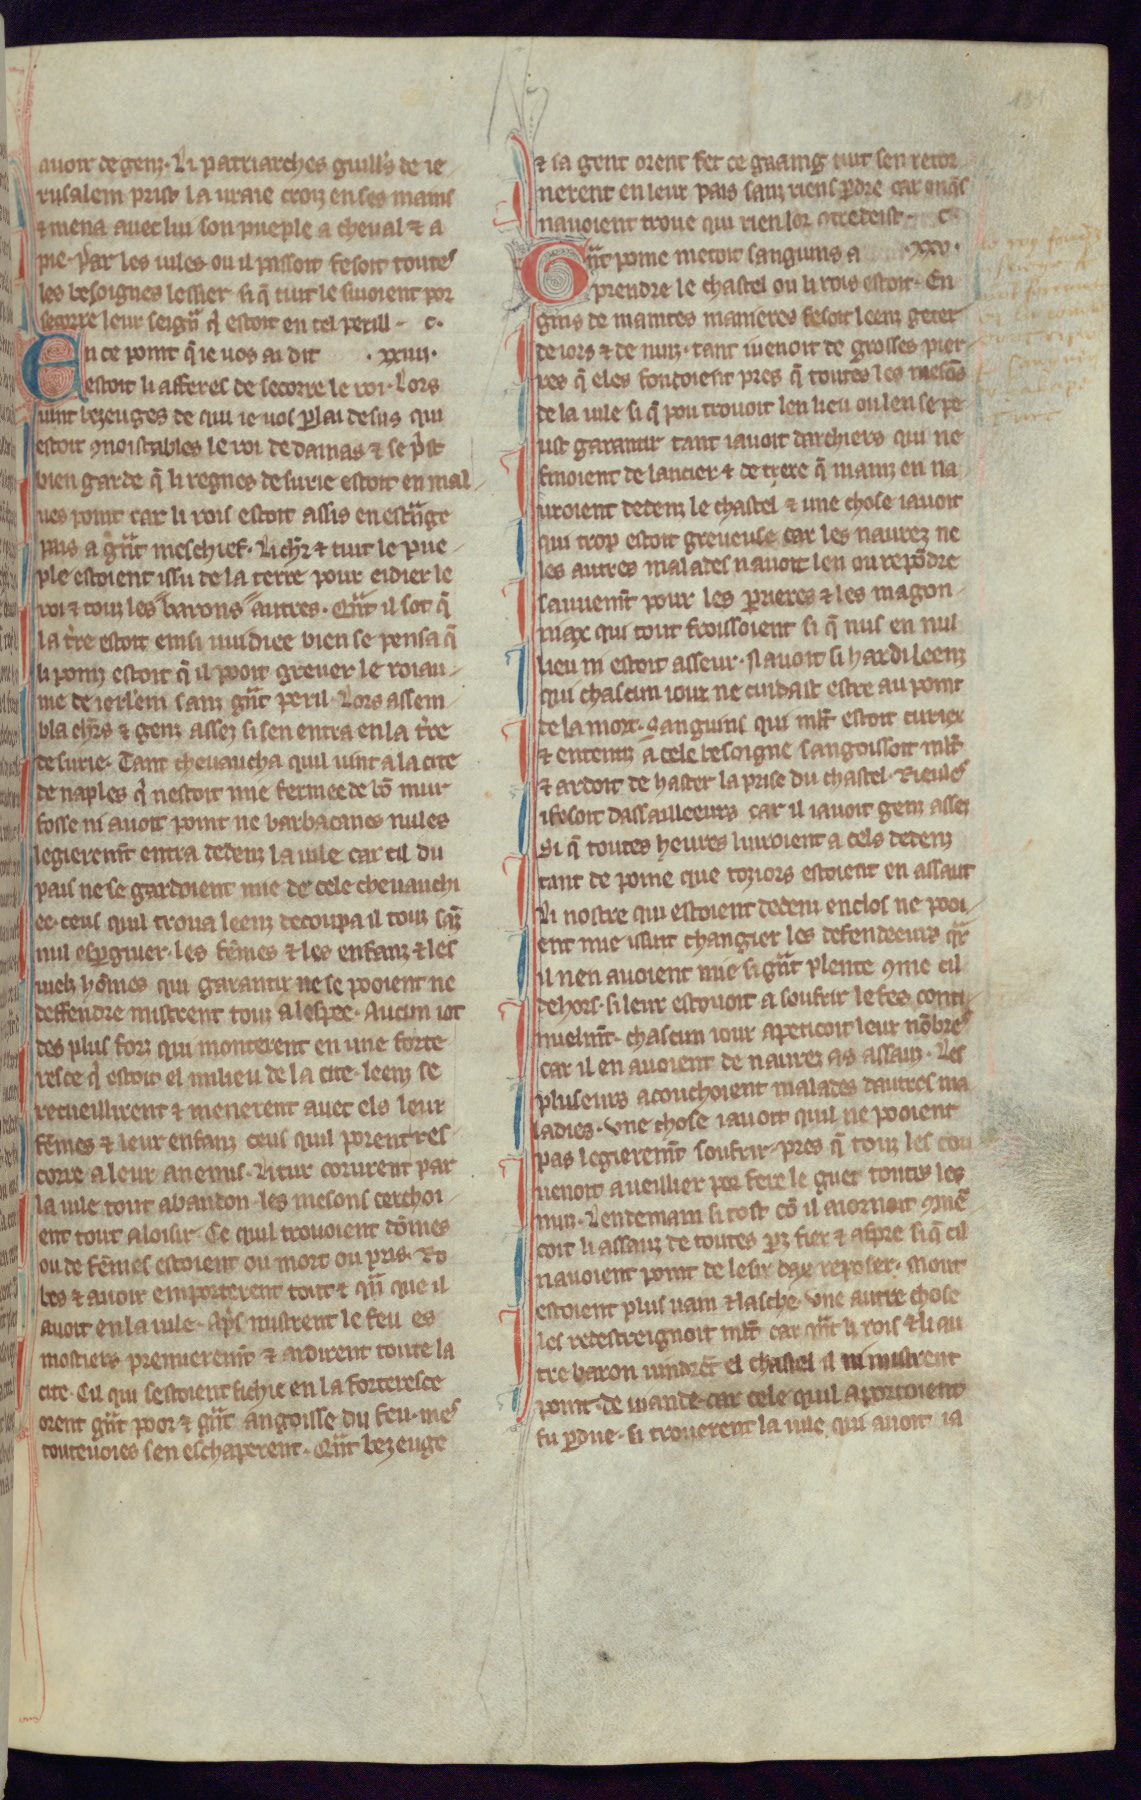 auoir de genz. Li patriarches guill's de ie
rusalem prist la uraie croiz en ses mains
⁊ mena auec lui son pueple a cheual ⁊ a
pie. Par les uiles ou il passoit fesoit toutes
les besoignes lessier. si q̃ tuit le siuoient por
secorre leur seign᷑ q̇ estoit en tel perill. c.
En ce point q̃ ie uos ai dit .xxiiii.
estoit li afferes de secorre le roi. Lors
uint bezeuges de qui ie uos ꝑlai desus qui
estoit ꝯnoistables le roi de damas ⁊ se p̃st
bien garde q̃ li regnes de surie estoit en mal
ues point car li rois estoit assis en est̃nge
pais a g̃nt meschief. Li ch'r ⁊ tuit le pue
ple estoient issu de la terre pour eidier le
roi ⁊ touz les barons autres. Qñt il sot q̃
la t̃re estoit einsi uuidiee bien se pensa q̃
li poinz estoit q̃ il pooit greuer le roiau
me de ierl'em sanz g̃nt peril. Lors assem
bla ch'rs ⁊ genz assez si sen entra en la t̃re
de surie. Tant cheuaucha quil uint a la cite
de naples q̇ nestoit mie fermee de bõ mur
fosse ni auoit point ne barbacanes nules
legierem̃t entra dedenz la uile car cil du
pais ne se gardoient mie de cele cheuauchi
ee. ceus quil troua leenz decoupa il touz sãz
nul espgnier. les fẽmes ⁊ les enfanz ⁊ les
uielz hõmes qui garantir ne se pooient ne
deffendre mistrent touz a lespee. Aucun iot
des plus forz qui monterent en une forte
resce q̇ estoit el milieu de la cite. leenz se
recueillirent ⁊ menerent auec els leur
fẽmes ⁊ leur enfanz ceus quil porent res
corre a leur anemis. Li tur corurent par
la uile tout abandon. les mesons cerchoi
ent tout a loisir. Ce quil trouoient dõmes
ou de fẽmes estoient ou mort ou pris. Ro
bes ⁊ auoir emporterent tout ⁊ q̃nq̃ que il
auoit en la uile. Ap's mistrent le feu es
mostiers premierem̃t ⁊ ardirent toute la
cite. Cil qui sestoient fichie en la forteresce
orent g̃nt poor ⁊ g̃nt angoisse du feu. mes
touteuoies sen eschaperent. Qñt bezeuge
⁊ sa gent orent fet ce gaaing tuit sen retor
nerent en leur pais sanz riens ꝑdre car onq̃s
nauoient troue qui rien lor ꝯtredeist. c.
Grãt poine metoit sanguins a .xxv.
prendre le chastel ou li rois estoit. En
gins de maintes manieres fesoit leenz geter
de iors ⁊ de nuiz. tant iuenoit de grosses pier
res q̃ eles fondoient pres q̃ toutes les mesõs
de la uile si q̃ pou trouoit len lieu ou len se pe
ust garantir tant iauoit darchiers qui ne
finoient de lancier ⁊ de trere q̃ mainz en na
uroient dedenz le chastel ⁊ une chose iauoit
qui trop estoit greueuse car les naurez ne
les autres malades nauoit len ou repõdre
sauuem̃t pour les ꝑrieres ⁊ les magon
niax qui tout froissoient si q̃ nus en nul
lieu ni estoit asseur. Ni auoit si hardi leenz
qui chascun iour ne cuidast estre au point
de la mort. Sanguins qui ml't estoit curiex
⁊ ententiz a cele besoigne sangoissoit ml't
⁊ ardoit de haster la prise du chastel. Rieules
i fesoit dassailleeurs car il iauoit genz assez
Si q̃ toutes heures liuroient a cels dedenz
tant de poine que toziors estoient en assaut
Li nostre qui estoient dedenz enclos ne pooi
ent mie issint changier les defendeeurs q̃r
il nen auoient mie si g̃nt plente ꝯme cil
dehors. si leur estouoit a soufrir le fes conti
nuelm̃t. chascun iour apeticoit leur nõbres
car il en auoient de naurez as assauz. Les
pluseurs acouchoient malades dautres ma
ladies. Vne chose iauoit quil ne pooient
pas legierem̃t soufrir. pres q̃ touz les cou
uenoit a ueillier por fere le guet toutes les
nuiz. Lendemain si tost cõ il aiornoit ꝯmẽ
coit li assauz de toutes ꝑz fier ⁊ aspre si q̃ cil
nauoient point de lesir daux reposer. Mout
estoient plus uain ⁊ lasche. Vne autre chose
les redestreignoit ml't car q̃nt li rois ⁊ li au
tre baron uindrẽt el chastel il ni mistrent
point de uiande car cele quil aportoient
fu ꝑdue. si trouerent la uile qui auoit ia